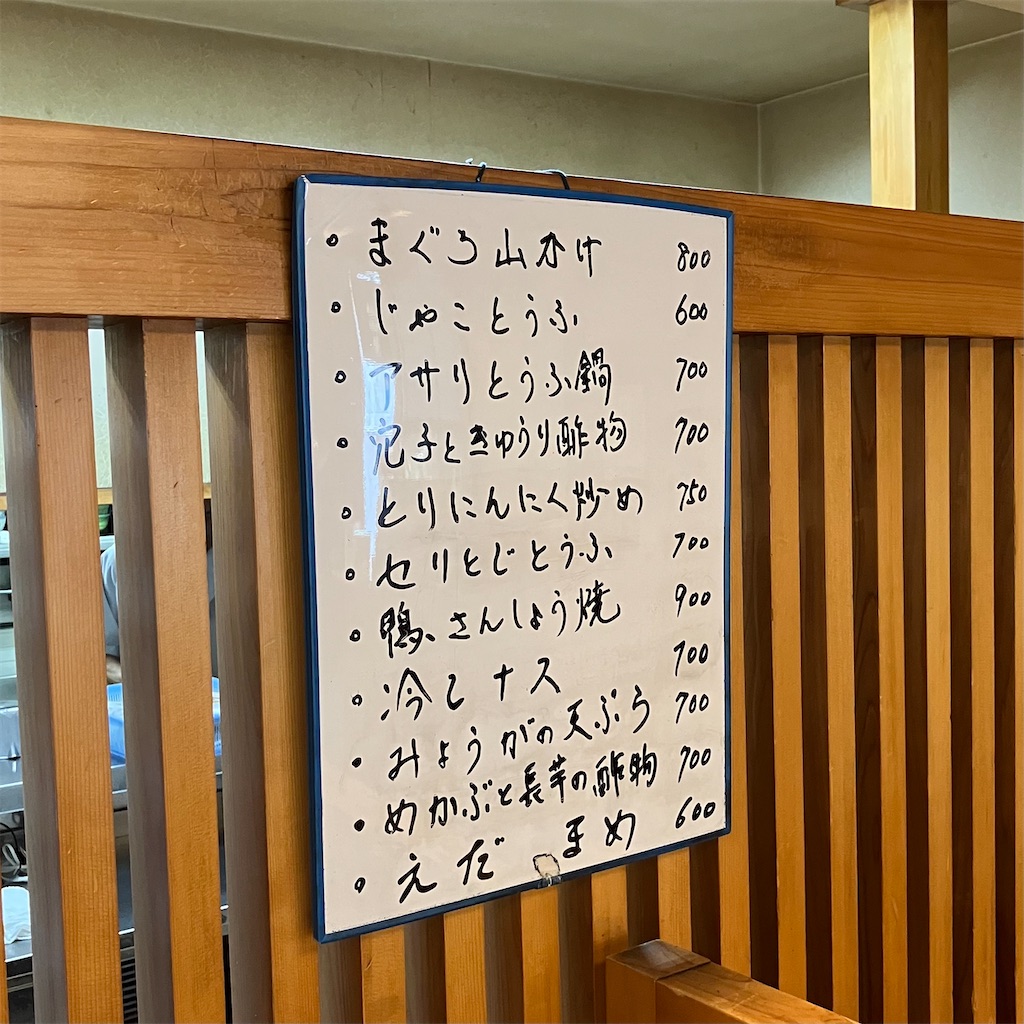 ・まぐろ山かけ 800
・じゃことうふ 600
・アサリとうふ鍋 700
・穴子ときゅうり酢物 700
・とりにんにく炒め 750
・セリとじとうふ 700
・鴨さんしょう焼 900
・冷しナス 700
・みょうがの天ぷら 700
・めかぶと長芋の酢物 700
・えだまめ 600